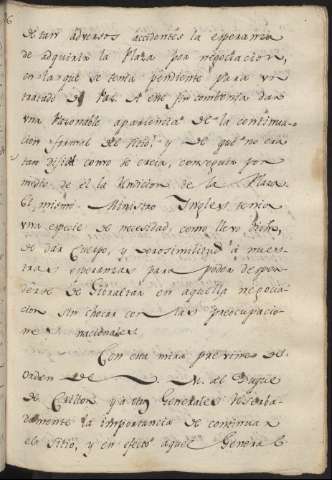 de tan adversos accidentes la esperanza
de adquirir la Plaza por negociacion,
en la que se tenia pendiente para un
tratado de Paz. A este fin combenia dar
una razonable apariencia de la continua-
cion formal de Sitio, y de que no era
tan dificil como se creia, conseguir por
medio de el la rendicion de la Plaza.
El mismo Ministro Yngles tenia
una especie de necesidad, como llevo dicho,
de dar cuerpo, y verosimilitud à nues-
tras esperanzas para poder despren-
derse de Gibraltar en aquella negocia-
cion sin chocar con las preocupacio-
nes nacionales.
Con esta mira previne de
orden de V. M. al Duque
de Crillon y à otros Generales reserba-
damente la importancia de continuar
el Sitio, y en efecto aquel General